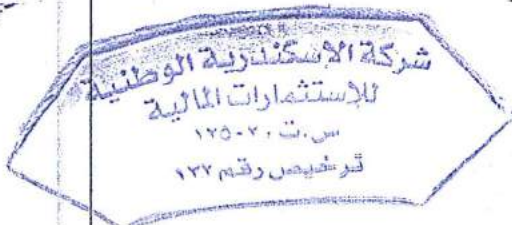 شركة الاسكندرية الوطنية
للإستثمارات المالية
س.ت ١٢٥٠٢٠
ترخيص رقم ١٣٢